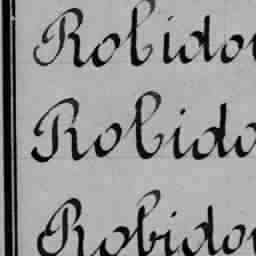 Robidou
Robido
Robidou